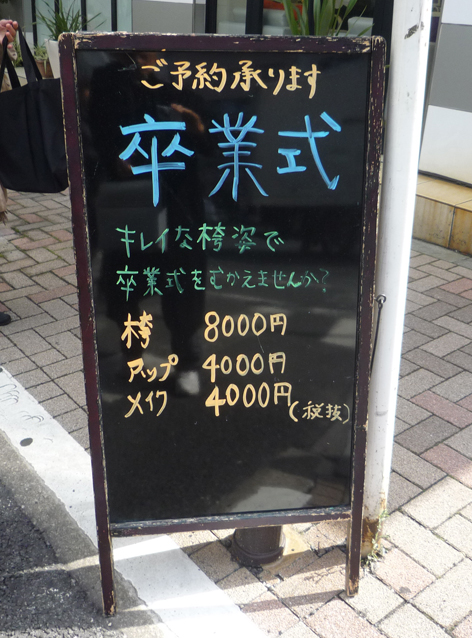 ご予約承ります
卒業式
キレイな袴姿で
卒業式をむかえませんか?
袴 8000円
アップ 4000円
メイク 4000円(税抜)